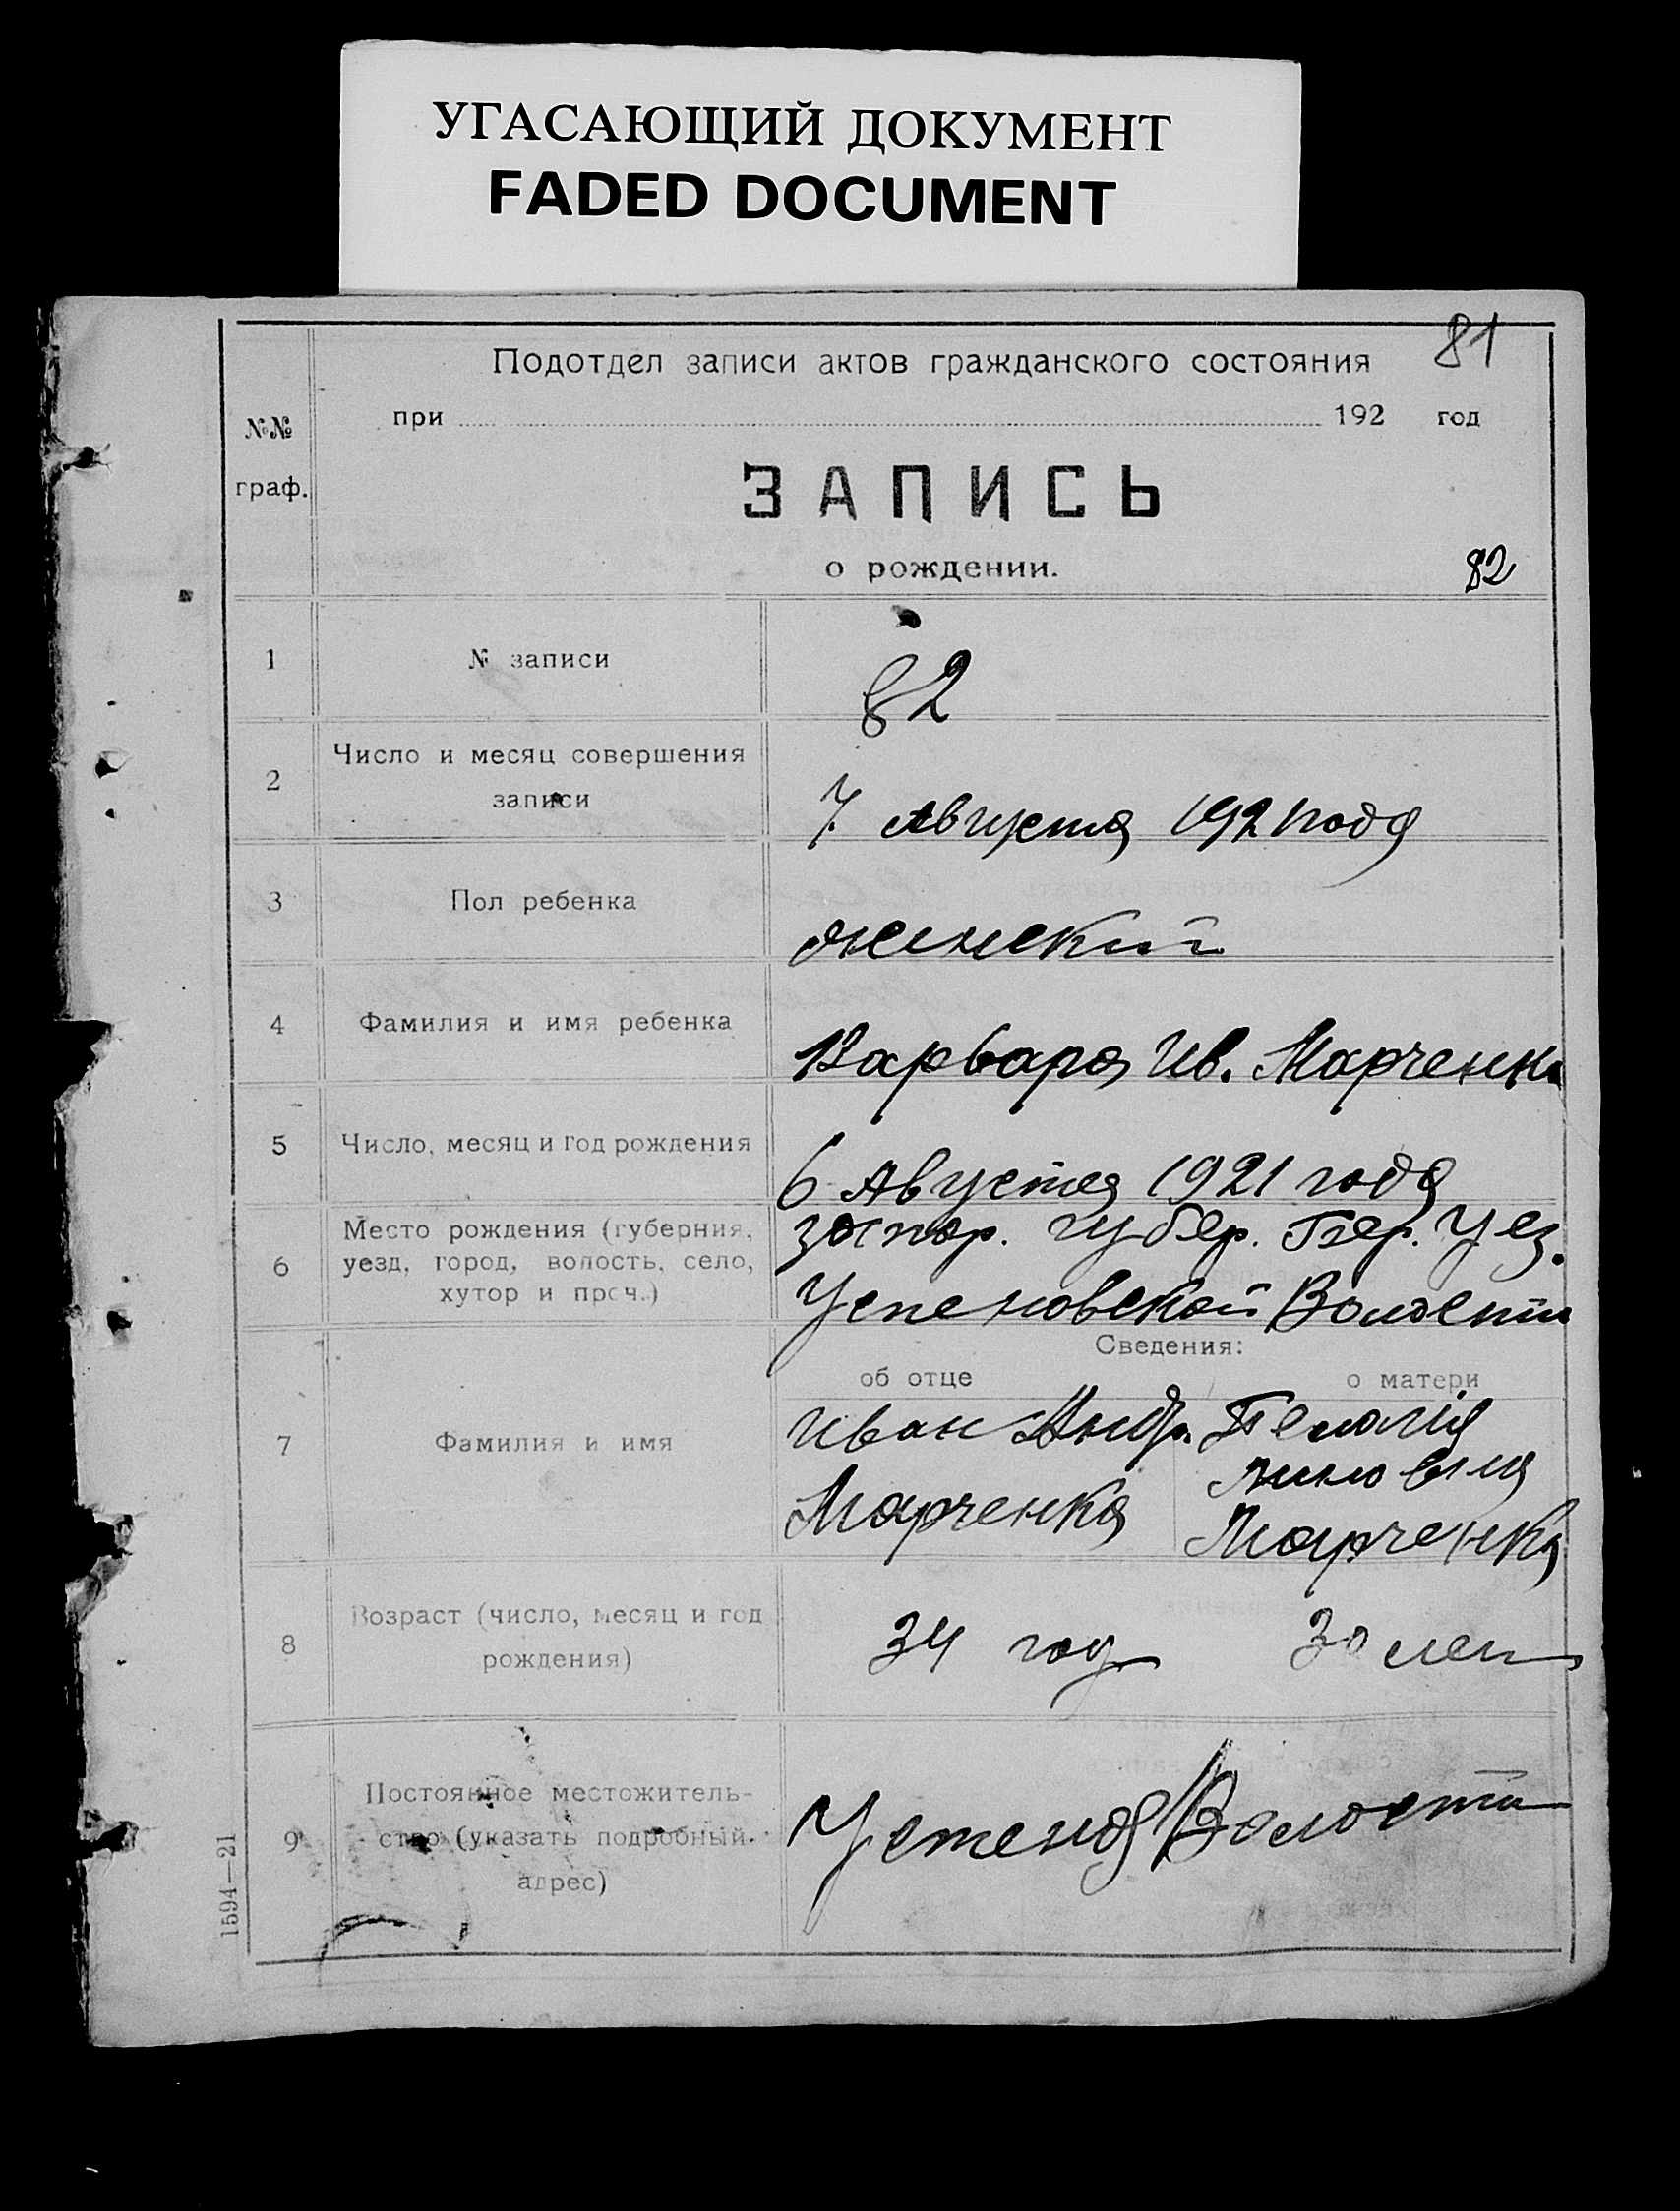 УГАСАЮЩИЙ ДОКУМЕНТ
FADED DOCUMENT
81
Подотдел записи актов гражданского состояния
при 192 год
№№
граф.
ЗАПИСЬ
о рождении.
82
1 № записи 82
2 Число и месяц совершения
записи 7. Августа 1921 года
3 Пол ребенка женский
4 Фамилия и имя ребенка Варвара Ив. Марченко
5 Число, месяц и год рождения 6 Августа 1921 года
6 Место рождения (губерния,
уезд, город, волость, село,
хутор и проч.)
Запор. губер. Бер. Уез.
Успеновской Волости
Сведения:
об отце о матери
7 Фамилия и имя
Иван Андр. Пелагія
Марченка Марченка
8 Возраст (число, месяц и год
рождения)
34 год 30 лет
9 Постоянное местожитель-
ство (указать подробный
адрес)
Волости
1594—21